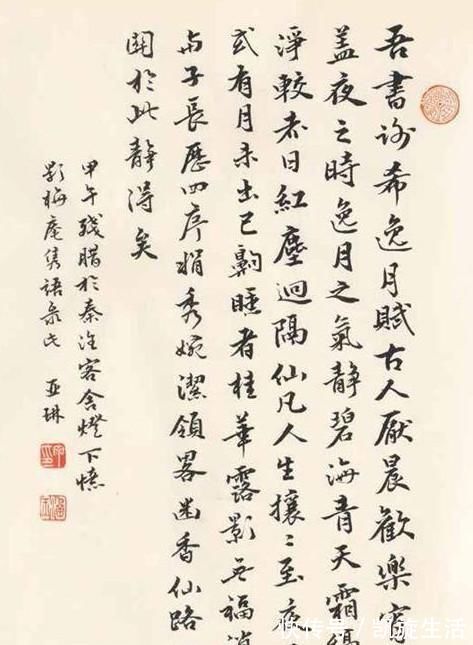 吾書谢希逸月賦古人厭晨歡樂宵
盖夜之時逸月之氣靜碧海青天霜縞
淨較赤日紅塵迥隔仙凡人生攘〻至夜
或有月未出已齁睡者桂華露影无福消
与子長歷四序娟秀婉潔領畧幽香仙路
關於此靜得矣
甲午殘腊於秦淮客舍燈下憶
影梅庵隽語录此 亚琳
快传号 / 凯旋生活